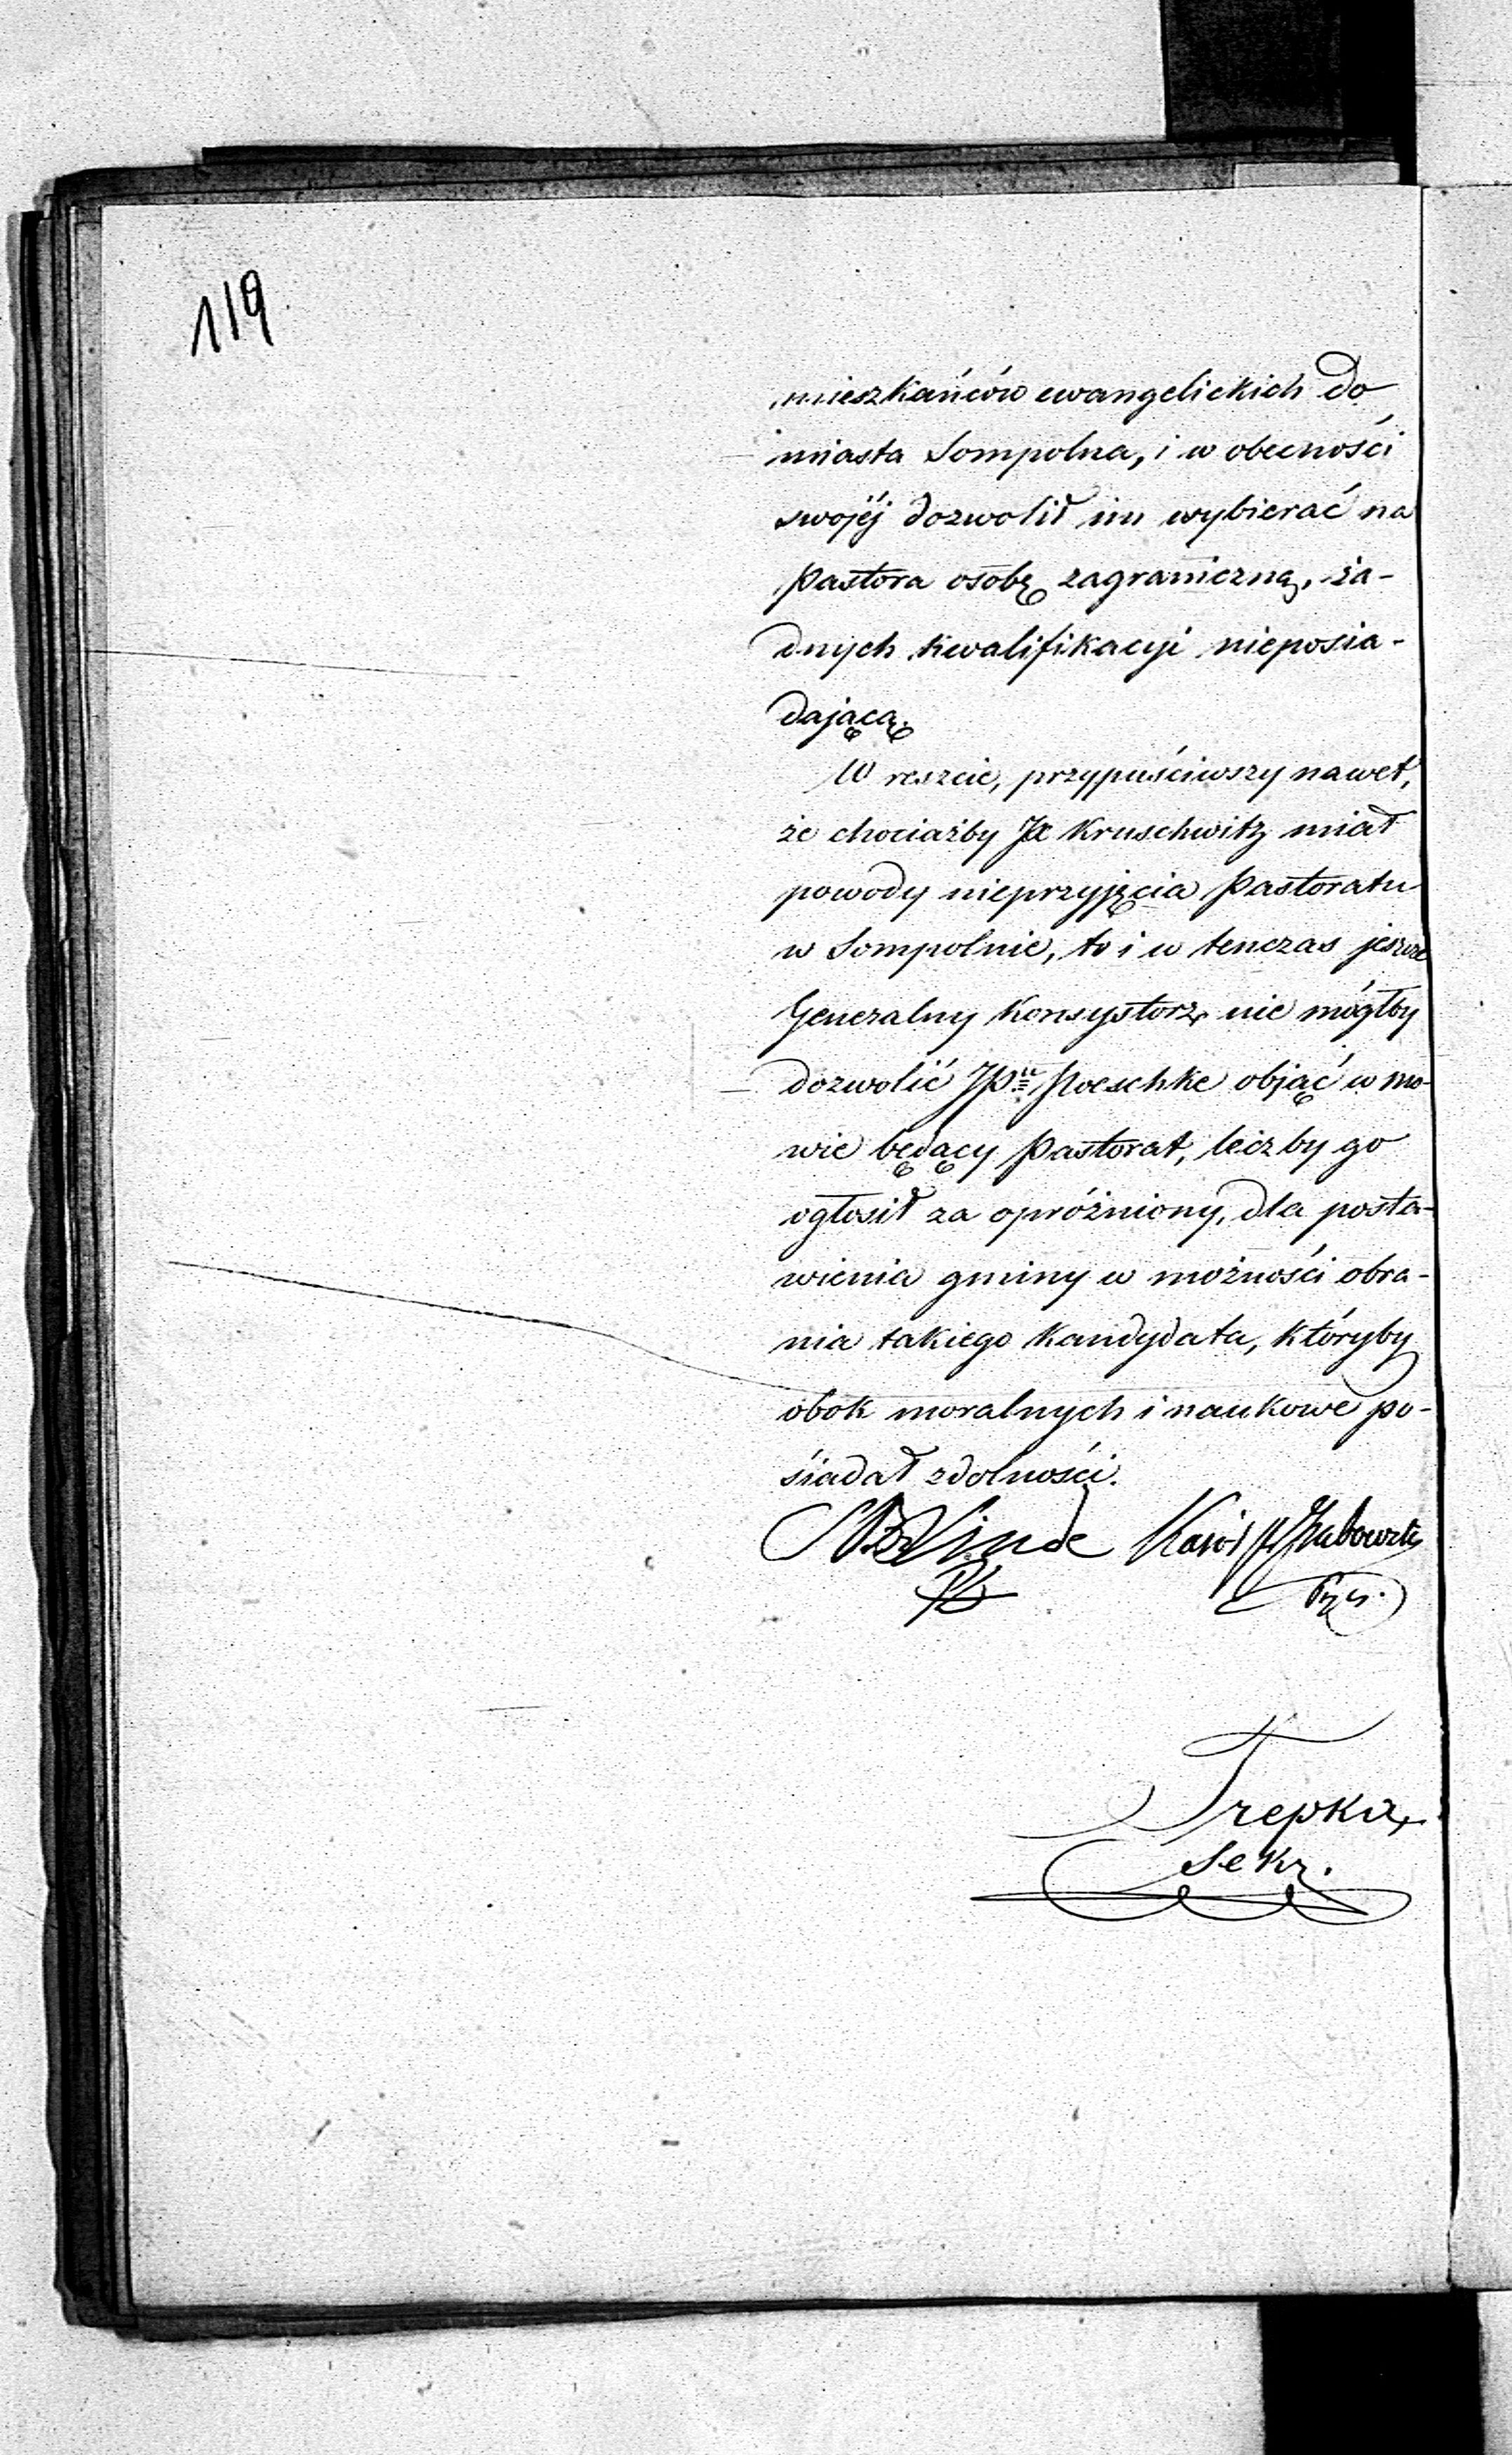 119
mieszkańców ewangelickich do
miasta Sompolna, i w obecności
swojéj dozwolił im wybierać na
Pastora osobę zagraniczną, ża-
dnych kwalifikacyi nieposia-
dającą.
W reszcie, przypuściwszy nawet,
że chociażby JX Kruschwitz miał
powody nieprzyjęcia Pastoratu
w Sompolnie, to i w tenczas jeszcze
Generalny Konsystorz nie mógłby
dozwolić JPu Poeschke objąć w mo-
wie będący Pastorat, leczby go
ogłosił za opróżniony, dla posta-
wienia gminy w możności obra-
nia takiego Kandydata, któryby
obok moralnych i naukowe po-
siadał zdolności.
Linde Karol
Trepka
Sekr.